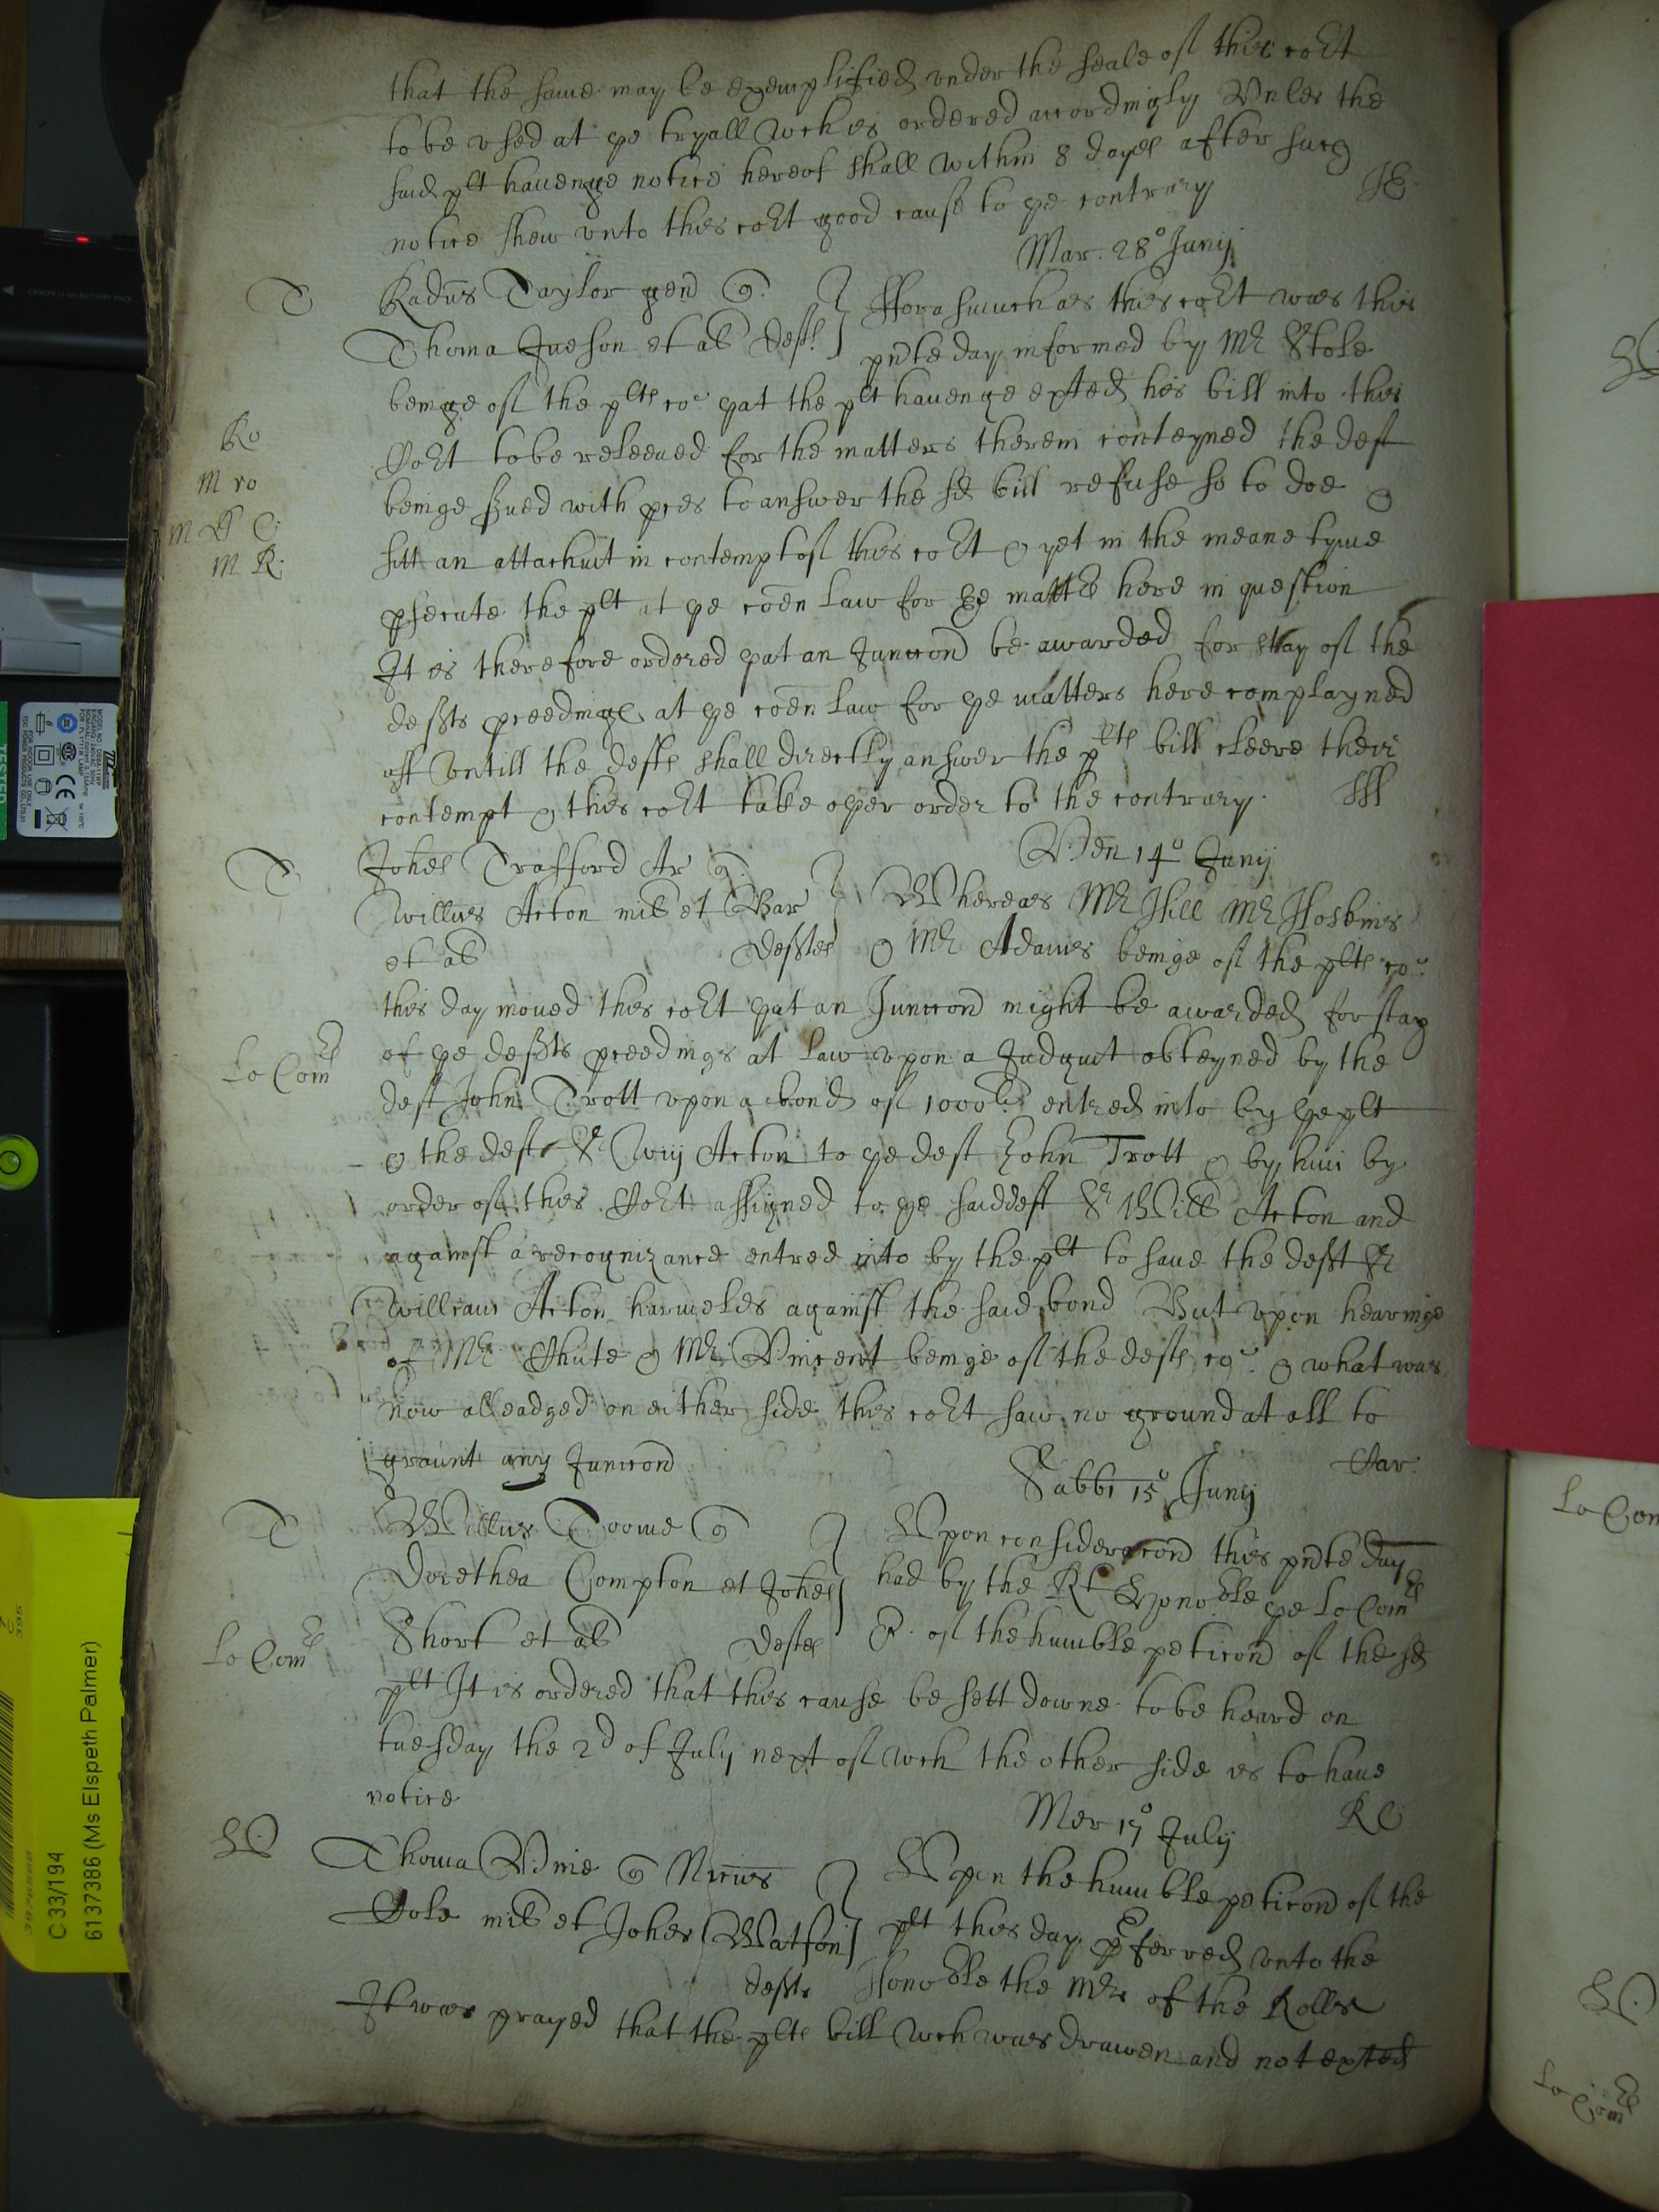 that the same may be exemplified vnder the seale of this cort
to be vsed at ye tryall wch is ordered accordingly Vnles the
said plt hauenge notice hereof shall within 8 dayes after such
notice shew vnto this cort good cause to ye contrary
Mar. 28o Junij
T Radus Taylor gen q.
fforasmuch as this cort was this
Thoma Jueson et al deft
pnte day informed by Mr Stole
beinge of the plts co. yat the plt hauenge exted his bill into this
Ro
Cort to be releeued for the matters therein conteyned the deft
M ro
beinge serued with pces to answer the sd bill refuse so to doe &
M R.
sitt an attachmt in contempt of this cort & yet in the meane tyme
psecute the plt at ye coen law for ye matters here in question
It is therefore ordered yat an Juncon be awarded for stay of the
defts pceedinges at ye coen law for ye matters here complayned
off vntill the defts shall directly answer the plts bill cleere their
contempt & this cort take oyer order to the contrary.
Ven 14o Junij
T Johes Trafford Ar q.
Willus Acton mil et Bar
Whereas Mr Hill Mr Hoskins
et al deftes
& Mr Adames beinge of the plts co.
this day moued this cort yat an Juncon might be awarded for stay
Lo Com
of ye defts pceedings at law vpon a Judgmt obteyned by the
deft John Trott vpon a bond of 1000li entred into by ye plt
& the deft Sr Wm Acton to ye deft John Trott & by him by
order of this Cort assigned to ye said deft Sr Will Acton and
against a recognizance entred into by the plt to saue the deft Sr
William Acton harmeles against the said bond But vpon hearinge
of Mr Chute & Mr Vincent beinge of the defts co. & what was
now alleadged on either side this cort saw no ground at all to
graunt any Juncon
Car.
Sabbi 15o Junij
T Willus Toome q
Vpon consideracon this pnte day
Dorethea Compton et Johes
had by the Rt Honoble ye Lo Com
Lo Com
Short et al deftes
R. of the humble peticon of the sd
plt It is ordered that this cause be sett downe to be heard on
tuesday the 2d of July next of wch the other side is to haue
notice
RC
Mer 17o July
Thoma Vine q Nicus
Vpon the humble peticon of the
Cole mil et Johes Watson
plt this day pferred vnto the
defts
Honoble the Mr of the Rolls
It was prayed that the plts bill wch was drawen and not exted
Lo Com
Lo Com
C 33/194
6137386 (Ms Elspeth Palmer)
TESTED